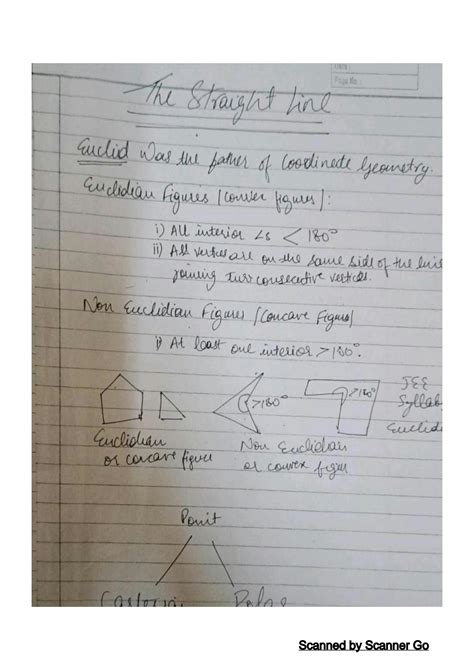 Page No.:
The Straight Line
Euclid was the father of Coordinate Geometry.
Euclidian Figures / Convex figures/:
i) All interior ∠s < 180°
ii) All vertices are on the same side of the line
joining two consecutive vertices.
Non Euclidian Figures / Concave Figure/
i) At least one interior > 180°.
>180°
>180°
JEE
Syllab
Euclid
Euclidian
or concave figure
Non Euclidian
or convex figur
Ponit
Cartesia
Polar
Scanned by Scanner Go